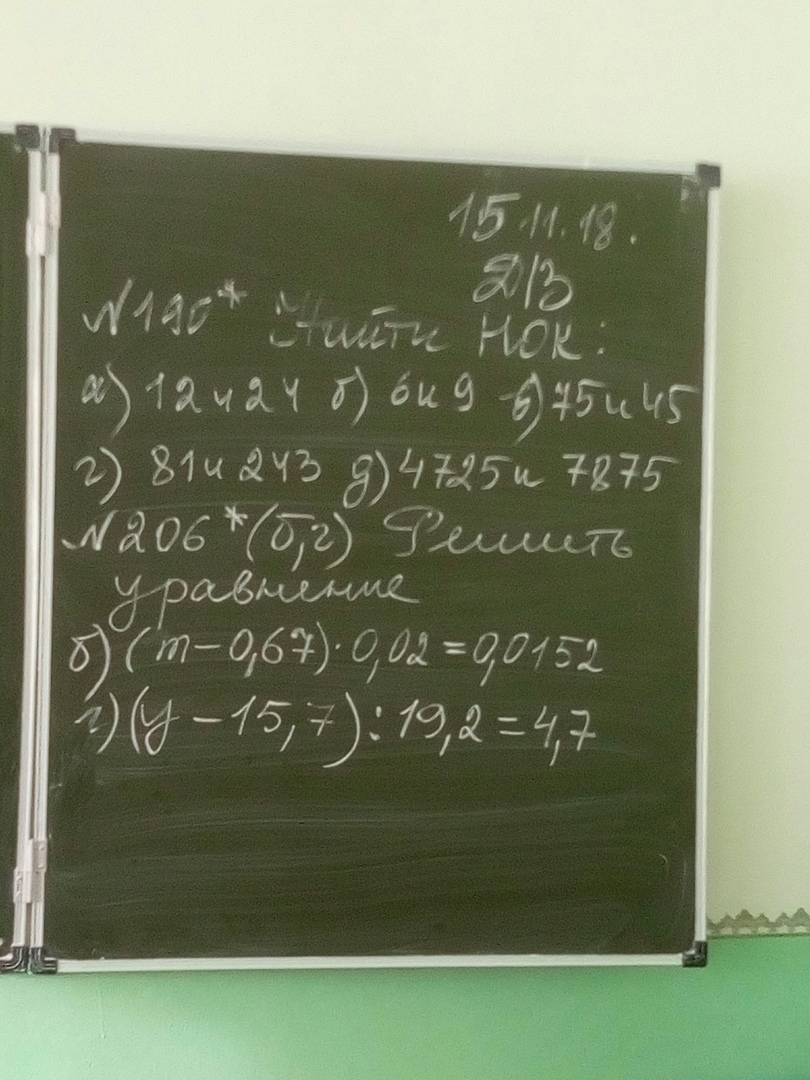 15.11.18.
Д/З
№190* Найти НОК:
а) 12 и 24 б) 6 и 9 в) 75 и 45
г) 81 и 243 д) 4725 и 7875
№206*(б,г) Решить
уравнение
б) (m-0,67)·0,02=0,0152
г) (у-15,7):19,2=4,7